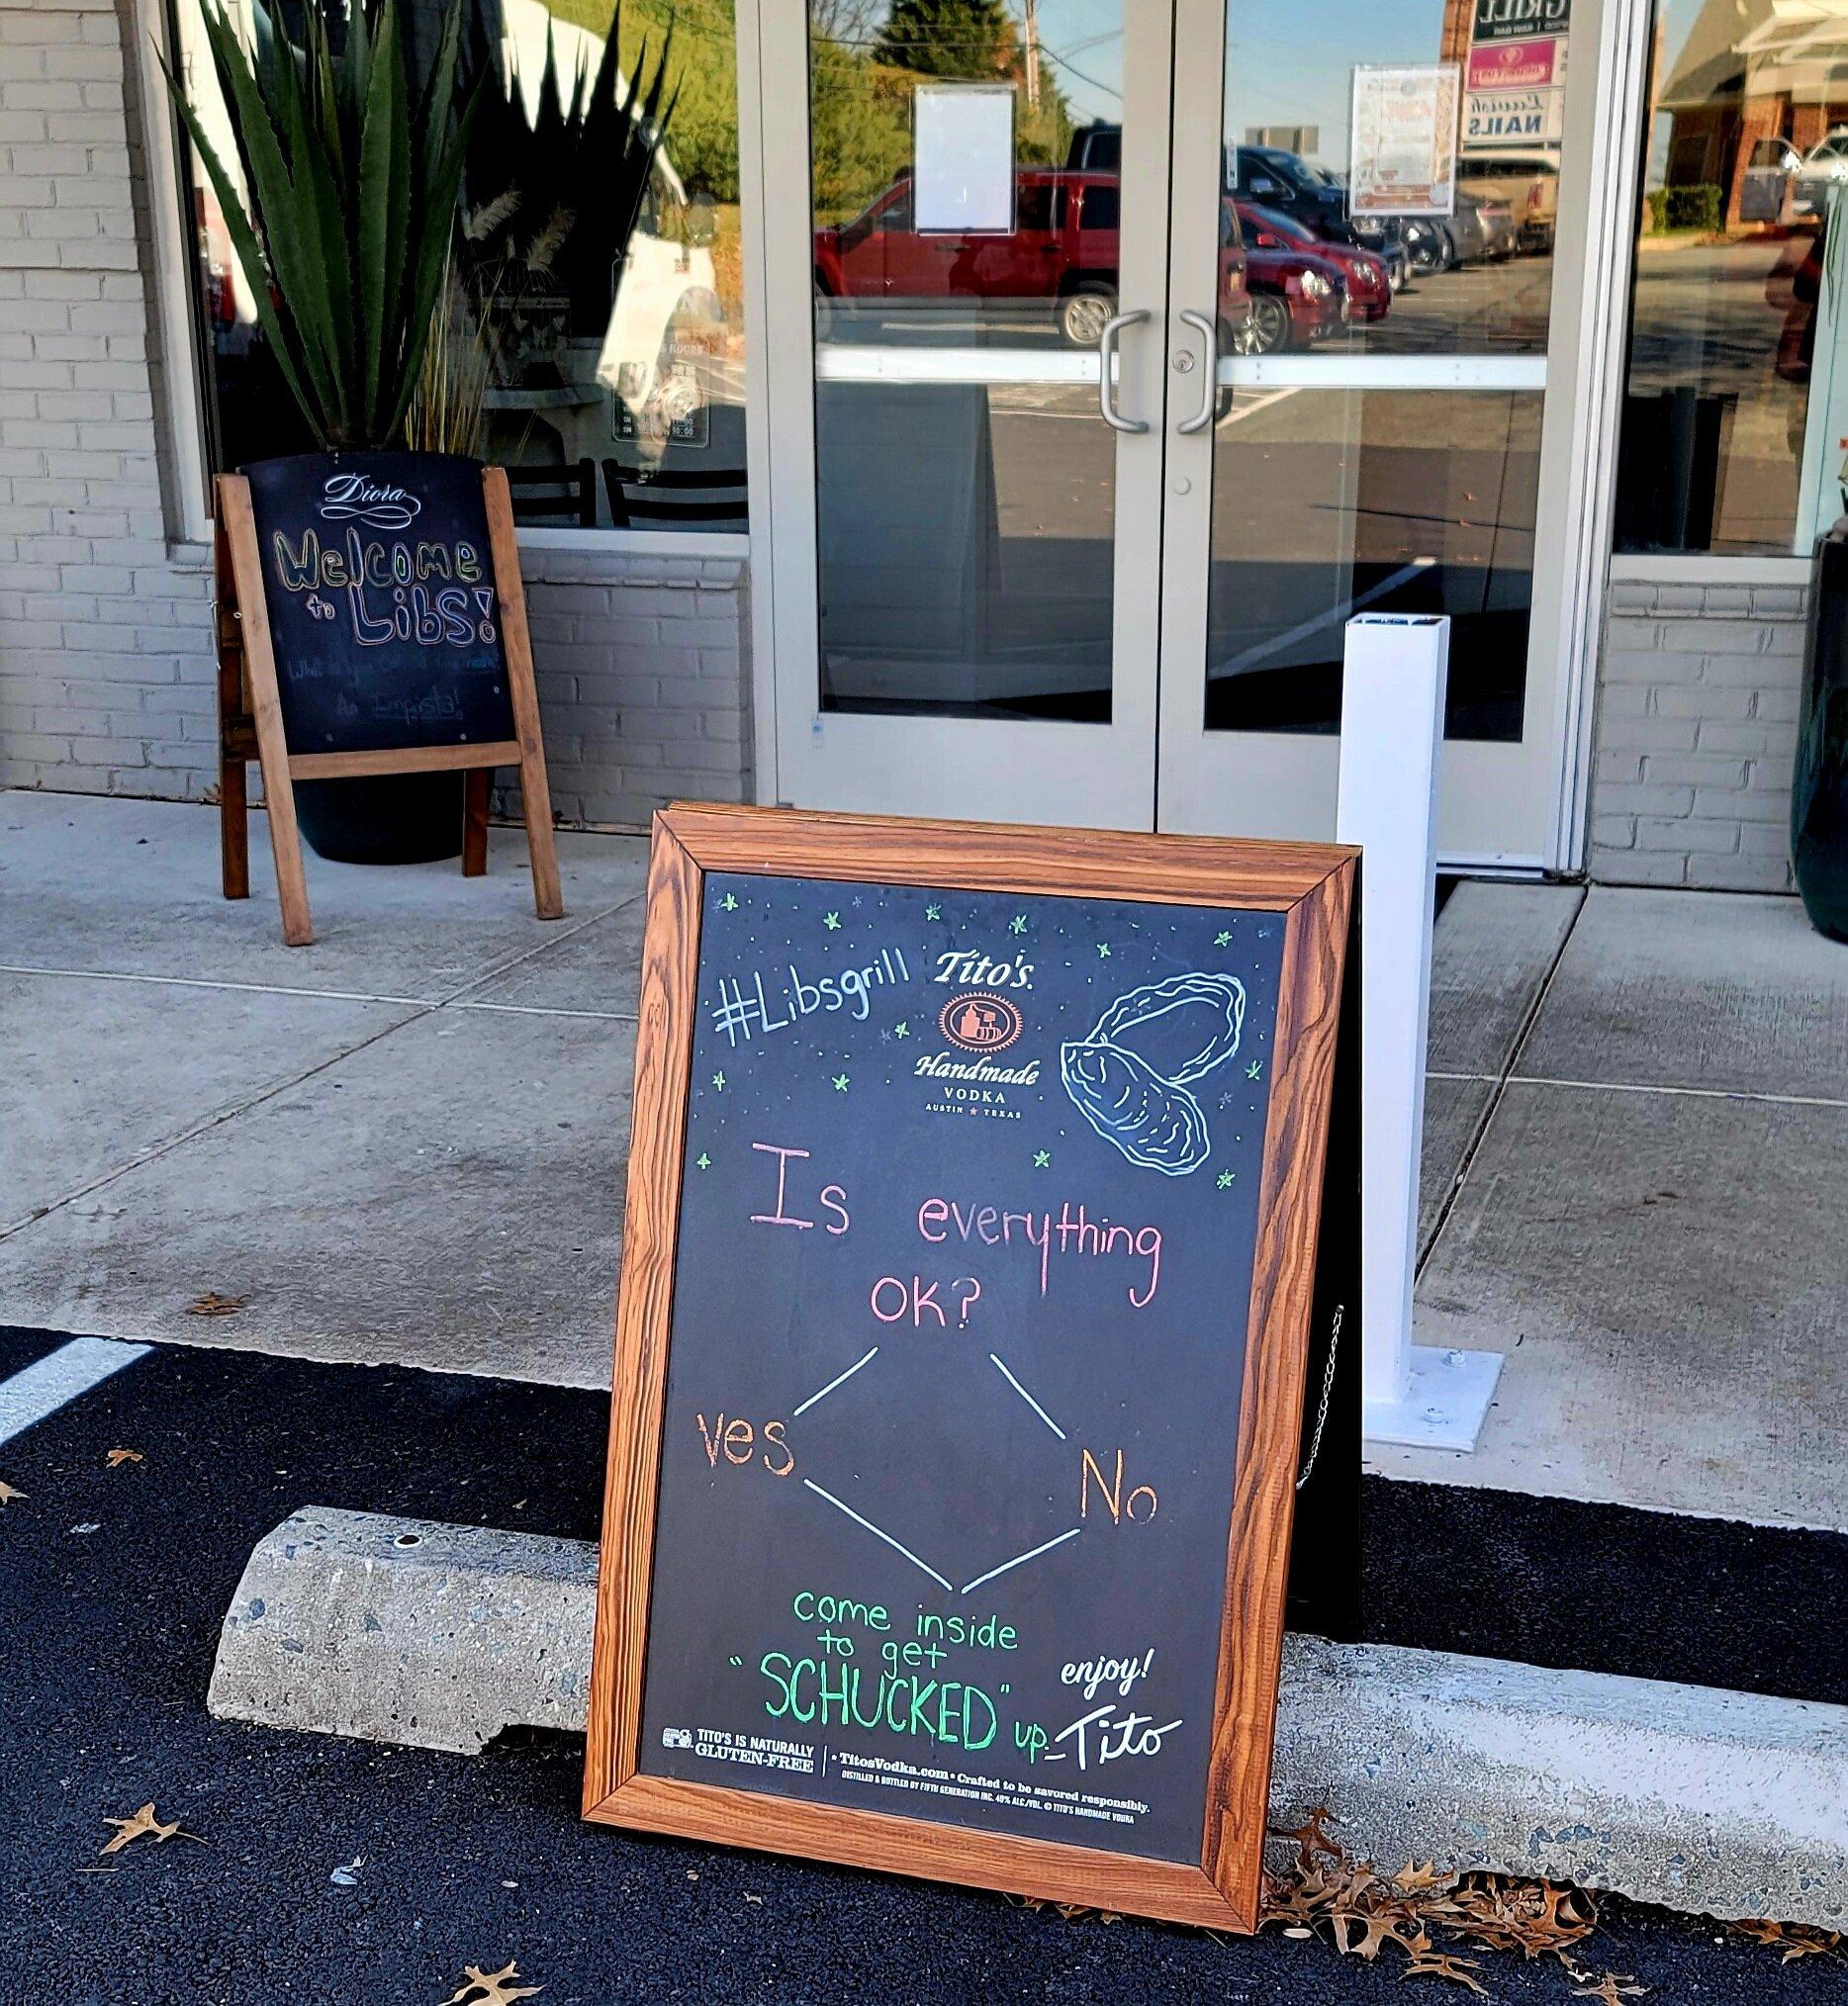 GRILL
NAILS
Diora
Welcome
to Libs!
An Impasta!
#Libsgrill
Tito's
Handmade
VODKA
AUSTIN ★ TEXAS
Is everything
OK?
yes
No
come inside
to get
"SCHUCKED" up.
enjoy!
-Tito
TITO'S IS NATURALLY
GLUTEN-FREE
• TitosVodka.com • Crafted to be savored responsibly.
DISTILLED & BOTTLED BY FIFTH GENERATION INC. 40% ALC./VOL. © TITO'S HANDMADE VODKA